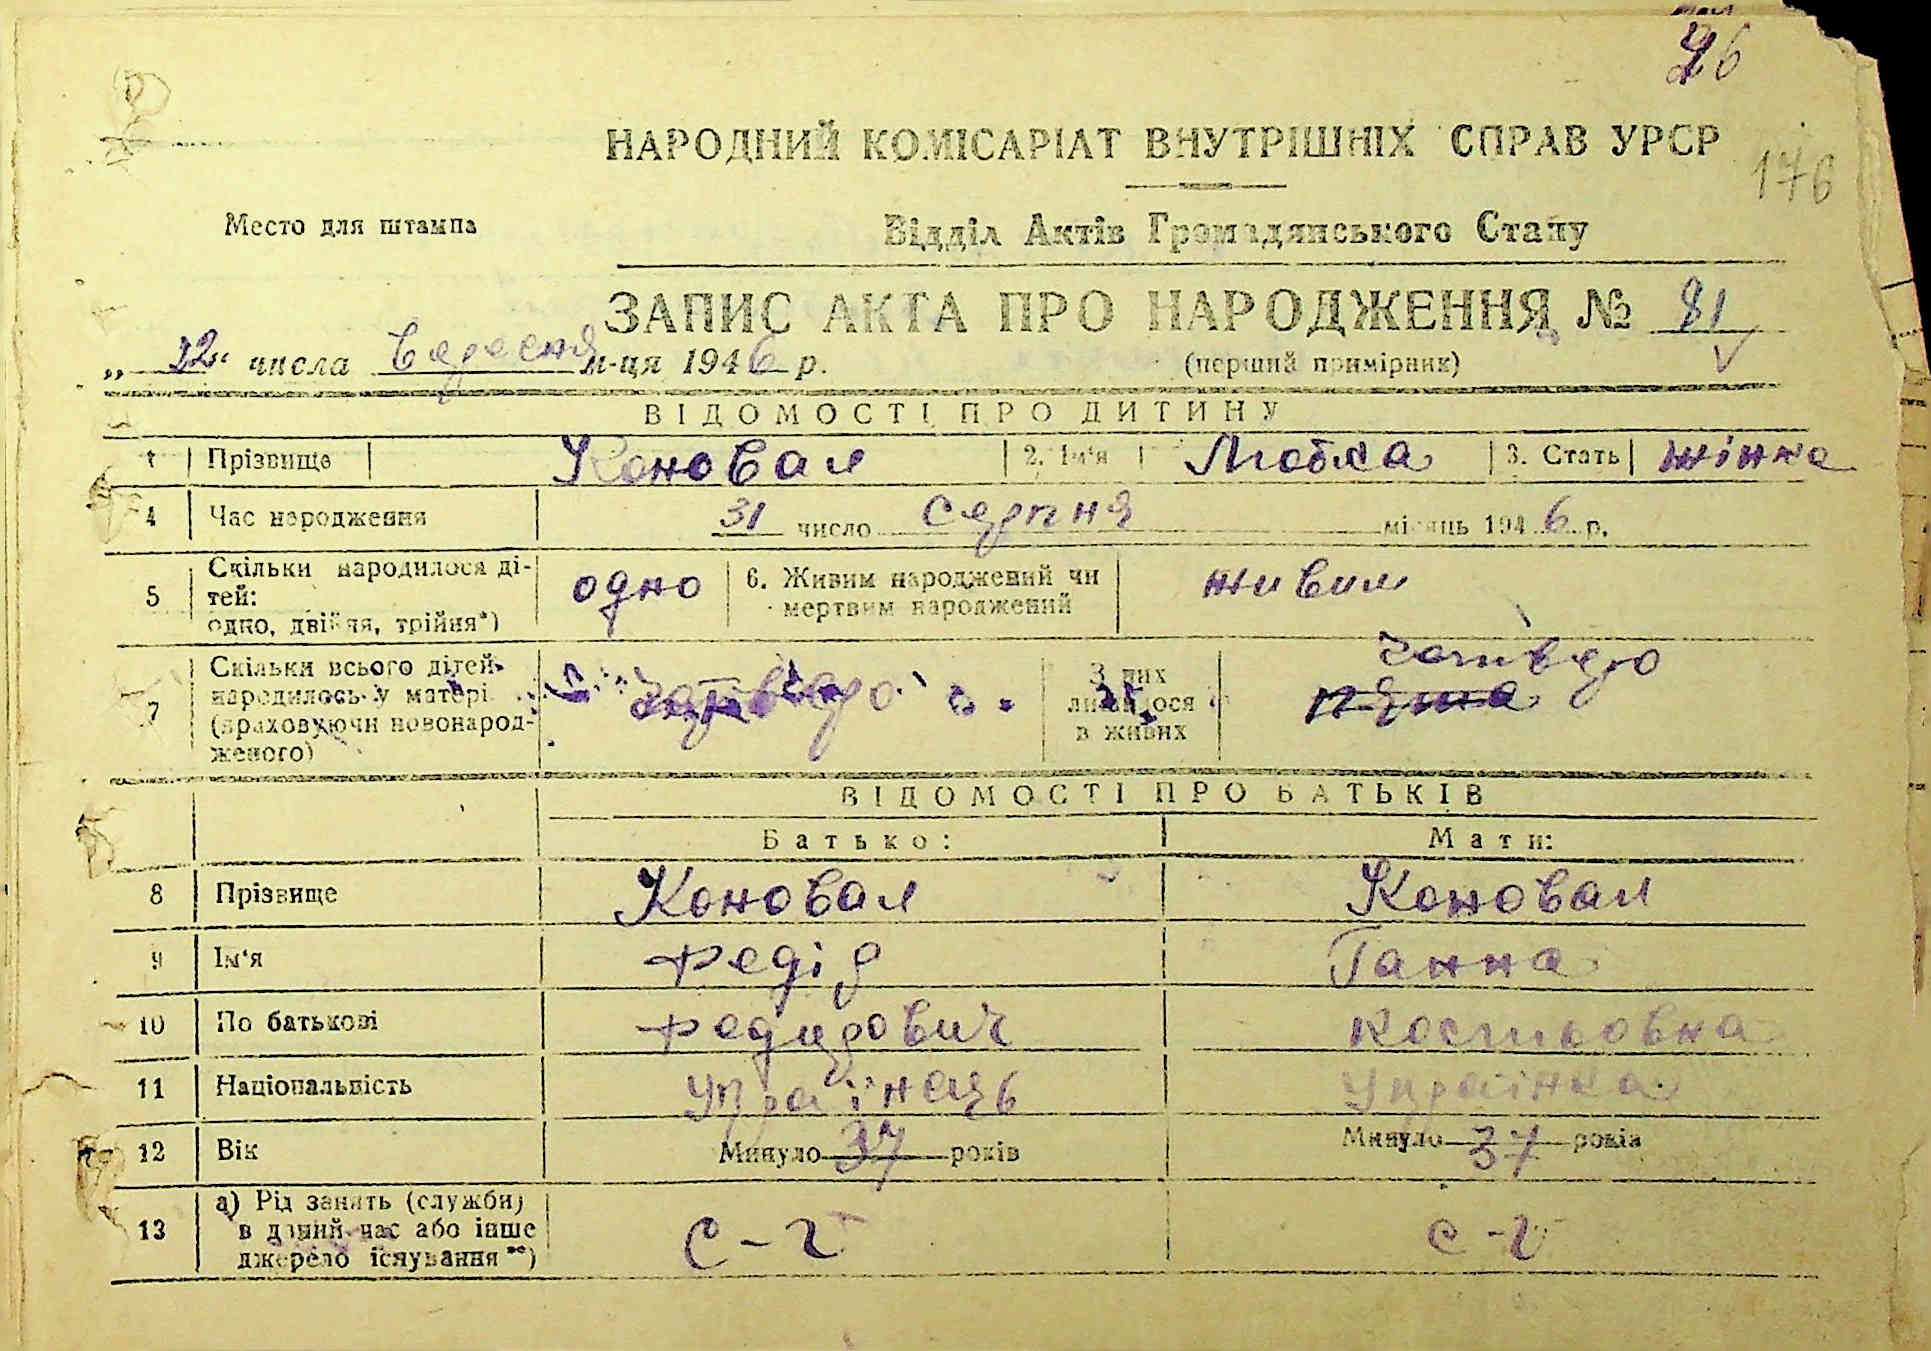 26
НАРОДНИЙ КОМІСАРІАТ ВНУТРІШНІХ СПРАВ УРСР
176
Место для штампа
Відділ Актів Громадянського Стану
ЗАПИС АКТА ПРО НАРОДЖЕННЯ № 81
„ 22 “ числа вересня м-ця 1946 р.
(перший примірник)
ВІДОМОСТІ ПРО ДИТИНУ
1 Прізвище Коновал 2. Ім'я Любка 3. Стать жінка
4 Час народження 31 число серпня місяць 1946 р.
5 Скільки народилося ді-
тей:
одно, двійня, трійня*) одно 6. Живим народжений чи
мертвим народжений живим
7 Скільки всього дітей
народилось у матері
(враховуючи новонарод-
женого) З них
лишилося
в живих
ВІДОМОСТІ ПРО БАТЬКІВ
Батько: Мати:
8 Прізвище Коновал Коновал
9 Ім'я Федір Ганна
10 По батькові Федирович Костьовна
11 Національність Українець Українка
12 Вік Минуло 37 років Минуло 37 років
13 а) Рід занять (служби)
в даний час або інше
джерело існування **) с-г с-г